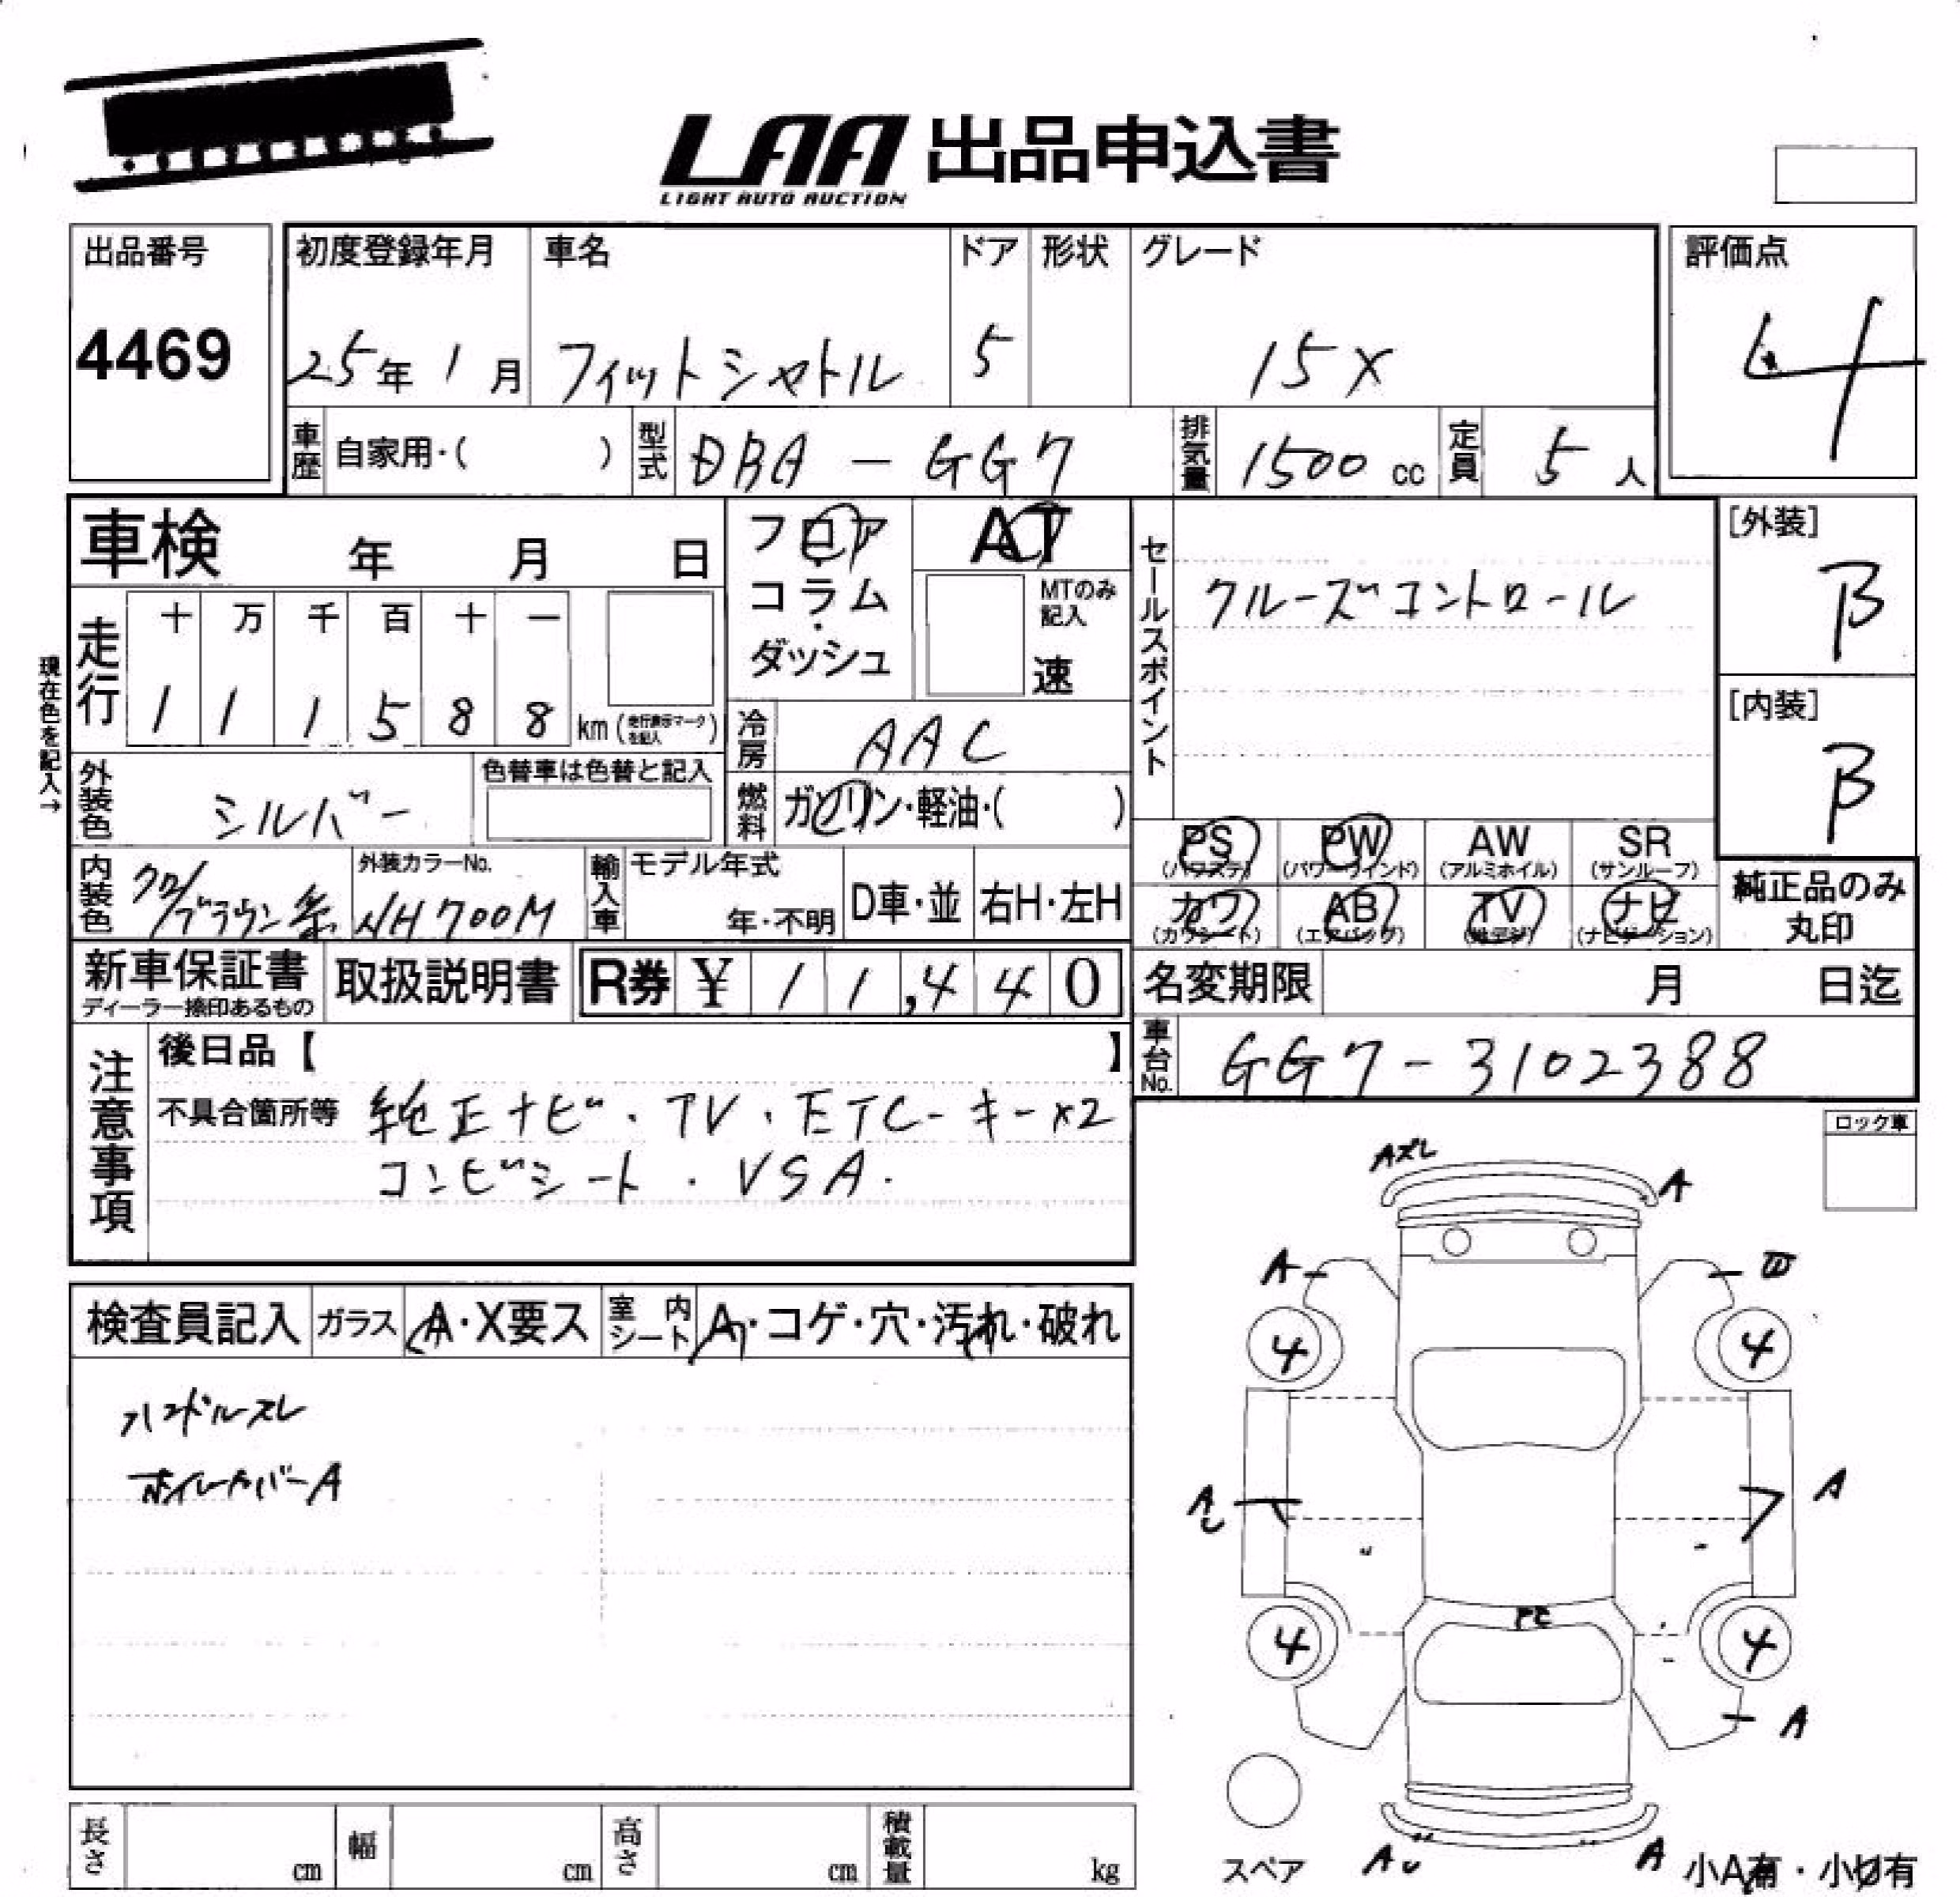 LAA 出品申込書
LIGHT AUTO AUCTION
出品番号
4469
初度登録年月
25年1月
車名
フィットシャトル
ドア
5
形状
グレード
15X
評価点
4
車歴 自家用・( )
型式 DBA-GG7
排気量 1500cc
定員 5人
車検 年 月 日
フロア・コラム・ダッシュ
AT
MTのみ記入
速
セールスポイント
クルーズコントロール
[外装]
B
[内装]
B
現在色を記入→
走行
十 万 千 百 十 一
1 1 1 5 8 8 km (走行表示マークを記入)
冷房 AAC
外装色 シルバー
色替車は色替と記入
燃料 ガソリン・軽油・( )
PS (パワステ)
PW (パワーウィンド)
AW (アルミホイル)
SR (サンルーフ)
カワ (カワシート)
AB (エアバッグ)
TV (地デジ)
ナビ (ナビゲーション)
純正品のみ丸印
内装色 クロ/ブラウン系
外装カラーNo.
NH700M
輸入車
モデル年式
年・不明
D車・並
右H・左H
新車保証書
ディーラー捺印あるもの
取扱説明書
R券 ¥ 11,440
名変期限 月 日迄
注意事項
後日品【 】
車台No. GG7-3102388
不具合箇所等 純正ナビ・TV・ETC-キー×2
コンビシート・VSA.
ロック車
検査員記入
ガラス A・X要ス
室内シート A・コゲ・穴・汚れ・破れ
ハンドルスレ
ホイルカバーA
Aズレ
A
A
4
4
A
A
4
4
A
A
A
スペア
小A有・小U有
長さ cm
幅 cm
高さ cm
積載量 kg